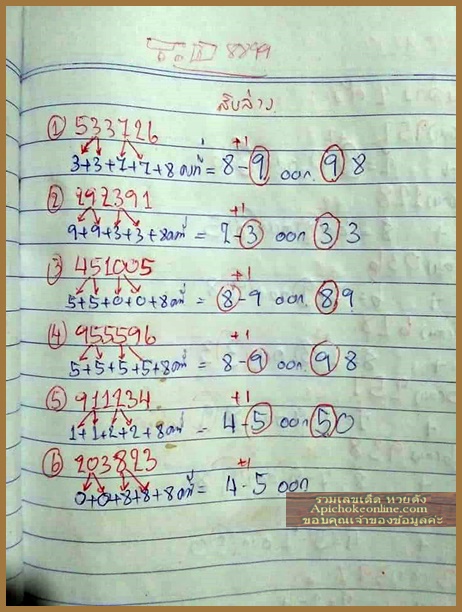 8899
สิบล่าง
① 533726
+1
3+3+7+7+8คงที่ = 8-9 ออก 98
② 297391
+1
9+9+3+3+8คงที่ = 2-3 ออก 33
③ 451005
+1
5+5+0+0+8คงที่ = 8-9 ออก 89
④ 955596
+1
5+5+5+5+8คงที่ = 8-9 ออก 98
⑤ 911234
+1
1+1+2+2+8คงที่ = 4-5 ออก 50
⑥ 203823
+1
0+0+8+8+8คงที่ = 4-5 ออก
รวมเลขเด็ด หวยดัง
Apichokeonline.com
ขอบคุณเจ้าของข้อมูลค่ะ